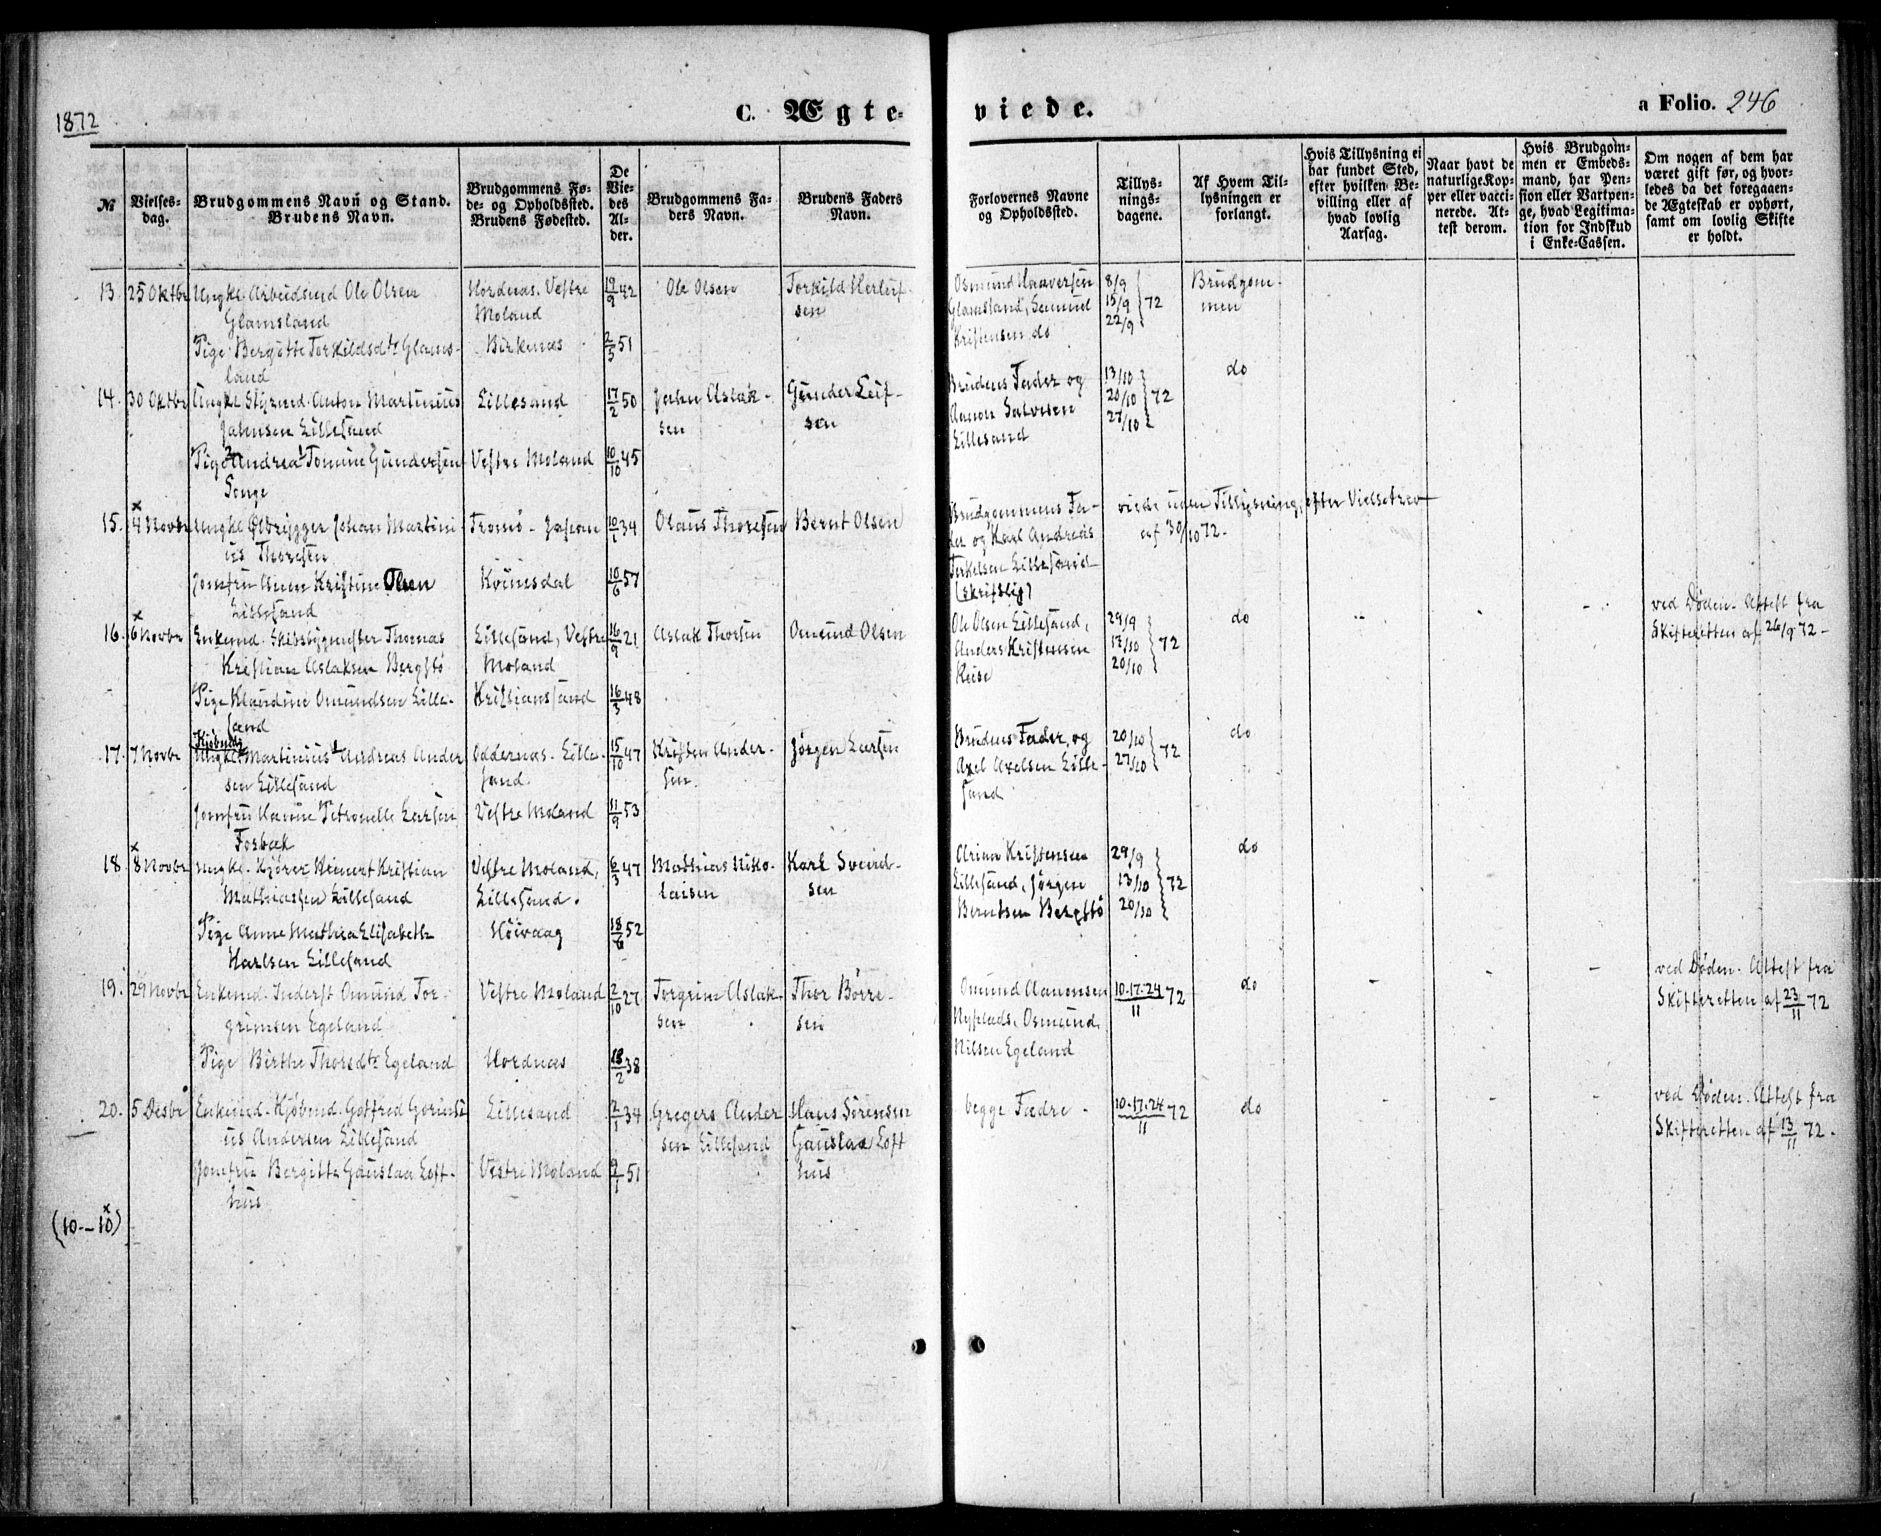 1872
C. Ægteviede.
a Folio. 246
№
Vielsesdag.
Brudgommens Navn og Stand.
Brudens Navn.
Brudgommens Føde- og Opholdssted.
Brudens Fødested.
De Viedes Alder.
Brudgommens Faders Navn.
Brudens Faders Navn.
Forlovernes Navne og Opholdssted.
Tillysningsdagene.
Af Hvem Tillysningen er forlangt.
Hvis Tillysning ei har fundet Sted, efter hvilken Bevilling eller af hvad lovlig Aarsag.
Naar havt de naturlige Kopper eller vaccinerede. Attest derom.
Hvis Brudgommen er Embedsmand, har Pension eller Vartpenge, hvad Legitimation for Indskud i Enke-Cassen.
Om nogen af dem har været gift før, og hvorledes da det foregaaende Ægteskab er ophørt, samt om lovlig Skifte er holdt.
13. 25 Oktbr Ungkl. Arbeidsmd Ole Olsen Hordnæs. Vestre 19/9 42 Ole Olsen Torkild Herluf- Osmund Haaversen 8/9 Brudgom-
Glamsland Moland sen Glamsland, Samuel 15/9 72 men
Pige Bergitte Torkildsdtr Glams- Birkenæs 2/5 51 Kristensen do 22/9
land
14. 30 Oktbr Ungkl Styrmd. Anton Martinius Lillesand 17/2 50 Jahn Aslak- Gunder Leif- Brudens Fader og 13/10 do
Jahnsen Lillesand sen sen Aanon Salvesen 20/10 72
Pige Andrea Tomine Gundersen Vestre Moland 10/10 45 Lillesand 27/10
Songe
15. 4 Novbr Ungkl Ølbrygger Johan Martini- Tromø - 10/1 34 Olaus Thoresen Bernt Olsen Brudgommens Fa- viede uden Tillysning, efter Vielsebrev
us Thoresen der og Karl Andreas af 30/10 72.
Jomfru Anne Kristine Olsen Kvinesdal 10/6 57 Terkelsen Lillesand
Lillesand (skriftlig)
16. 6 Novbr Enkemd. Skibsbygmester Thomas Lillesand, Vestre 16/9 21 Aslak Thorsen Omund Olsen Ole Olsen Lillesand, 29/9 do ved Døden. Attest fra
Kristian Aslaksen Bergstø Moland Anders Kristensen 13/10 72 Skifteretten af 26/9 72 -
Pige Klaudine Omundsen Lille- Kristianssand 16/3 48 20/10
sand
17. 7 Novbr Ungkl Kjøbmd Martinius Andreas Ander Oddernæs. Lille- 15/10 47 Kristen Ander- Jørgen Larsen Brudens Fader, og 20/10 do
sen Lillesand sand. sen. Axel Axelsen Lille- 27/10 72
Jomfru Karine Petronelle Larsen Vestre Moland 11/9 53 sand
Fosbæk
18. 8 Novbr Ungkl. Kjører Reinert Kristian Vestre Moland, 6/3 47 Mathias Niko- Karl Svend- Arina Kristensen 29/9 do
Mathiassen Lillesand Lillesand. laisen sen Lillesand, Jørgen 13/10 72
Pige Anne Mathea Elisabeth Høivaag 18/6 52 Berntsen Bergstø 20/10
Karlsen Lillesand
19. 29 Novbr Enkemd. Inderst Omund Tor- Vestre Moland 2/10 27 Torgrim Aslak- Thor Børre- Omund Aanonsen 10.17.24/11 72 do ved Døden. Attest fra
grimsen Egeland sen sen Nyplads, Osmund Skifteretten af 23/11 72
Pige Birthe Thorsdtr Egeland Hordnæs 18/2 38 Nilsen Egeland
20. 5 Desbr Enkemd. Kjøbmd. Gotfred Gerini- Lillesand 2/1 34 Gregers Ander Hans Sørensen begge Fædre. 10.17.24/11 72 do ved Døden. Attest fra
us Andersen Lillesand sen Lillesand Gauslaa Loft Skifteretten af 13/11 72.
Jomfru Bergitte Gauslaa Loft- Vestre Moland 9/1 51 hus
hus
(10-10)